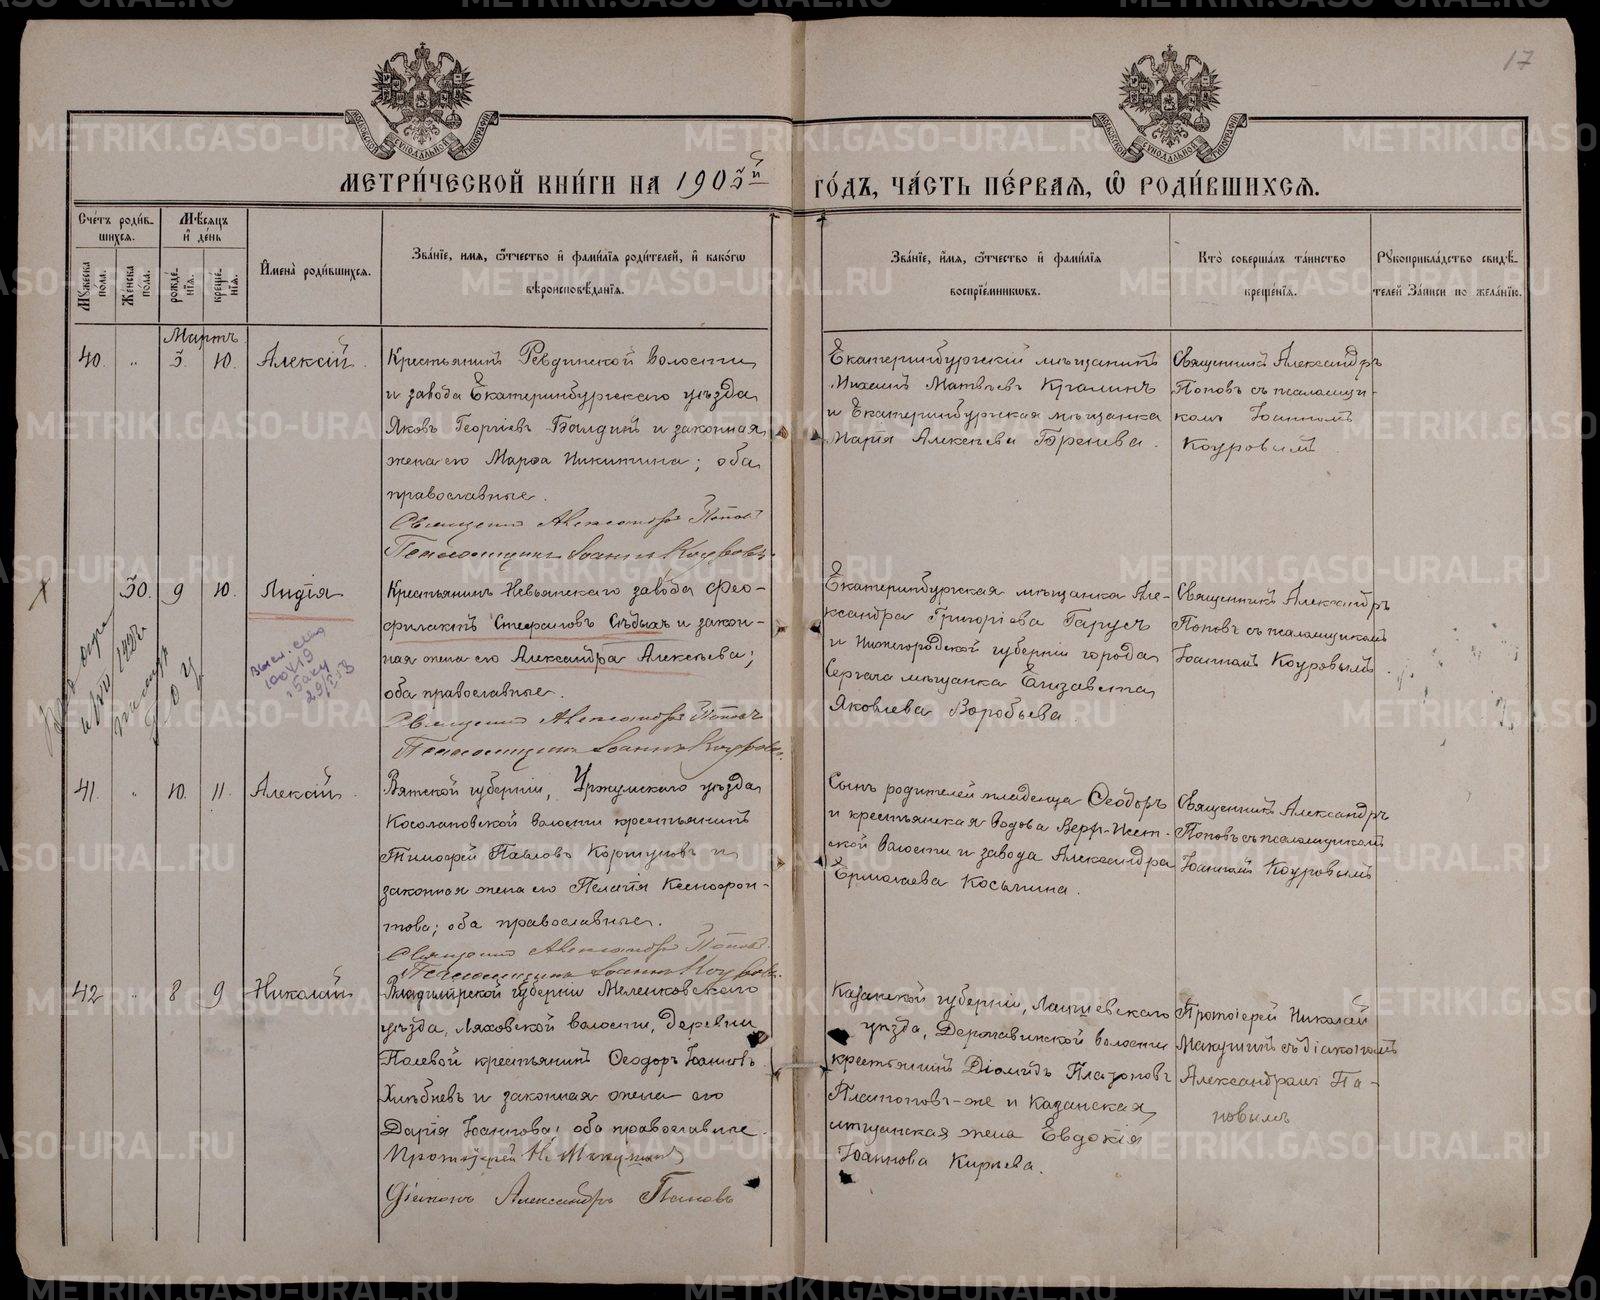 17
МЕТРИ́ЧЕСКОЙ КНИ́ГИ НА 1905й ГО́ДЪ, ЧА́СТЬ ПЕ́РВАЯ, Ѿ РОДИ́ВШИХСЯ.
Сче́тъ роди́в-
шихся.
Мѣ́сяцъ
и҆ де́нь
Мꙋ́жеска
пола.
Же́нска
пола.
рожде́-
нїя.
креще́-
нїя.
И҆мена̀ роди́вшихся.
Зва́нїе, имя, ѻ҆́тчество и҆ фами́лїя роди́телей, и҆ како́гѡ
вѣроисповѣ́данїя.
Зва́нїе, и҆́мя, ѻ҆́тчество и҆ фами́лїя
воспрїе́мникѡвъ.
Кто̀ соверша́лъ та́инство
креще́нїя.
Рꙋкоприкла́дство свидѣ́-
телей За́писи по жела́нїю.
Мартъ
40. „ 5. 10. Алексій.
Крестьянинъ Ревдинской волости
и завода Екатеринбургскаго уѣзда
Яковъ Георгіевъ Балдинъ и законная
жена его Марѳа Никитина; оба
православные.
Священникъ Александръ Поповъ
Псаломщикъ Іоаннъ Коуровъ.
Екатеринбургскій мѣщанинъ
Михаилъ Матвѣевъ
и Екатеринбургская мѣщанка
Марія Алексѣева
Священникъ Александръ
Поповъ съ псаломщи-
комъ Іоанномъ
Коуровымъ
30. 9 10. Лидія
Крестьянинъ Невьянскаго завода Ѳео-
филактъ Стефановъ Сѣдыхъ и закон-
ная жена его Александра Алексѣева;
оба православные.
Священникъ Александръ Поповъ
Псаломщикъ Іоаннъ Коуровъ.
Екатеринбургская мѣщанка Але-
ксандра Григоріева Гарусъ
и Нижегородской губерніи города
Сергача мѣщанка Елизавета
Яковлева Воробьева.
Священникъ Александръ
Поповъ съ псаломщикомъ
Іоанномъ Коуровымъ
41. „ 10. 11. Алексій.
Вятской губерніи, Уржумскаго уѣзда
Косолаповской волости крестьянинъ
Тимофей Павловъ Коршуновъ и
законная жена его Пелагія Ксенофон-
това; оба православные.
Священникъ Александръ Поповъ.
Псаломщикъ Іоаннъ Коуровъ.
Сынъ родителей младенца Ѳеодоръ
и крестьянская вдова Верх-Исет-
ской волости и завода Александра
Ермолаева Косьмина.
Священникъ Александръ
Поповъ съ псаломщикомъ
Іоанномъ Коуровымъ
42 „ 8 9 Николай
Владимірской губерніи Меленковскаго
уѣзда, Ляховской волости, деревни
Полевой крестьянинъ Ѳеодоръ Іоанновъ
Хлѣбневъ и законная жена его
Дарія Іоаннова; оба православные.
Протоіерей Н. Макушинъ
Діаконъ Александръ Поповъ
Казанской губерніи, Лаишевскаго
уѣзда, Державинской волости
крестьянинъ Діомидъ Платоновъ
Платоновъ-же и Казанская
мѣщанская жена Евдокія
Іоаннова Кирѣева.
Протоіерей Николай
Макушинъ съ діакономъ
Александромъ По-
повымъ
METRIKI.GASO-URAL.RU